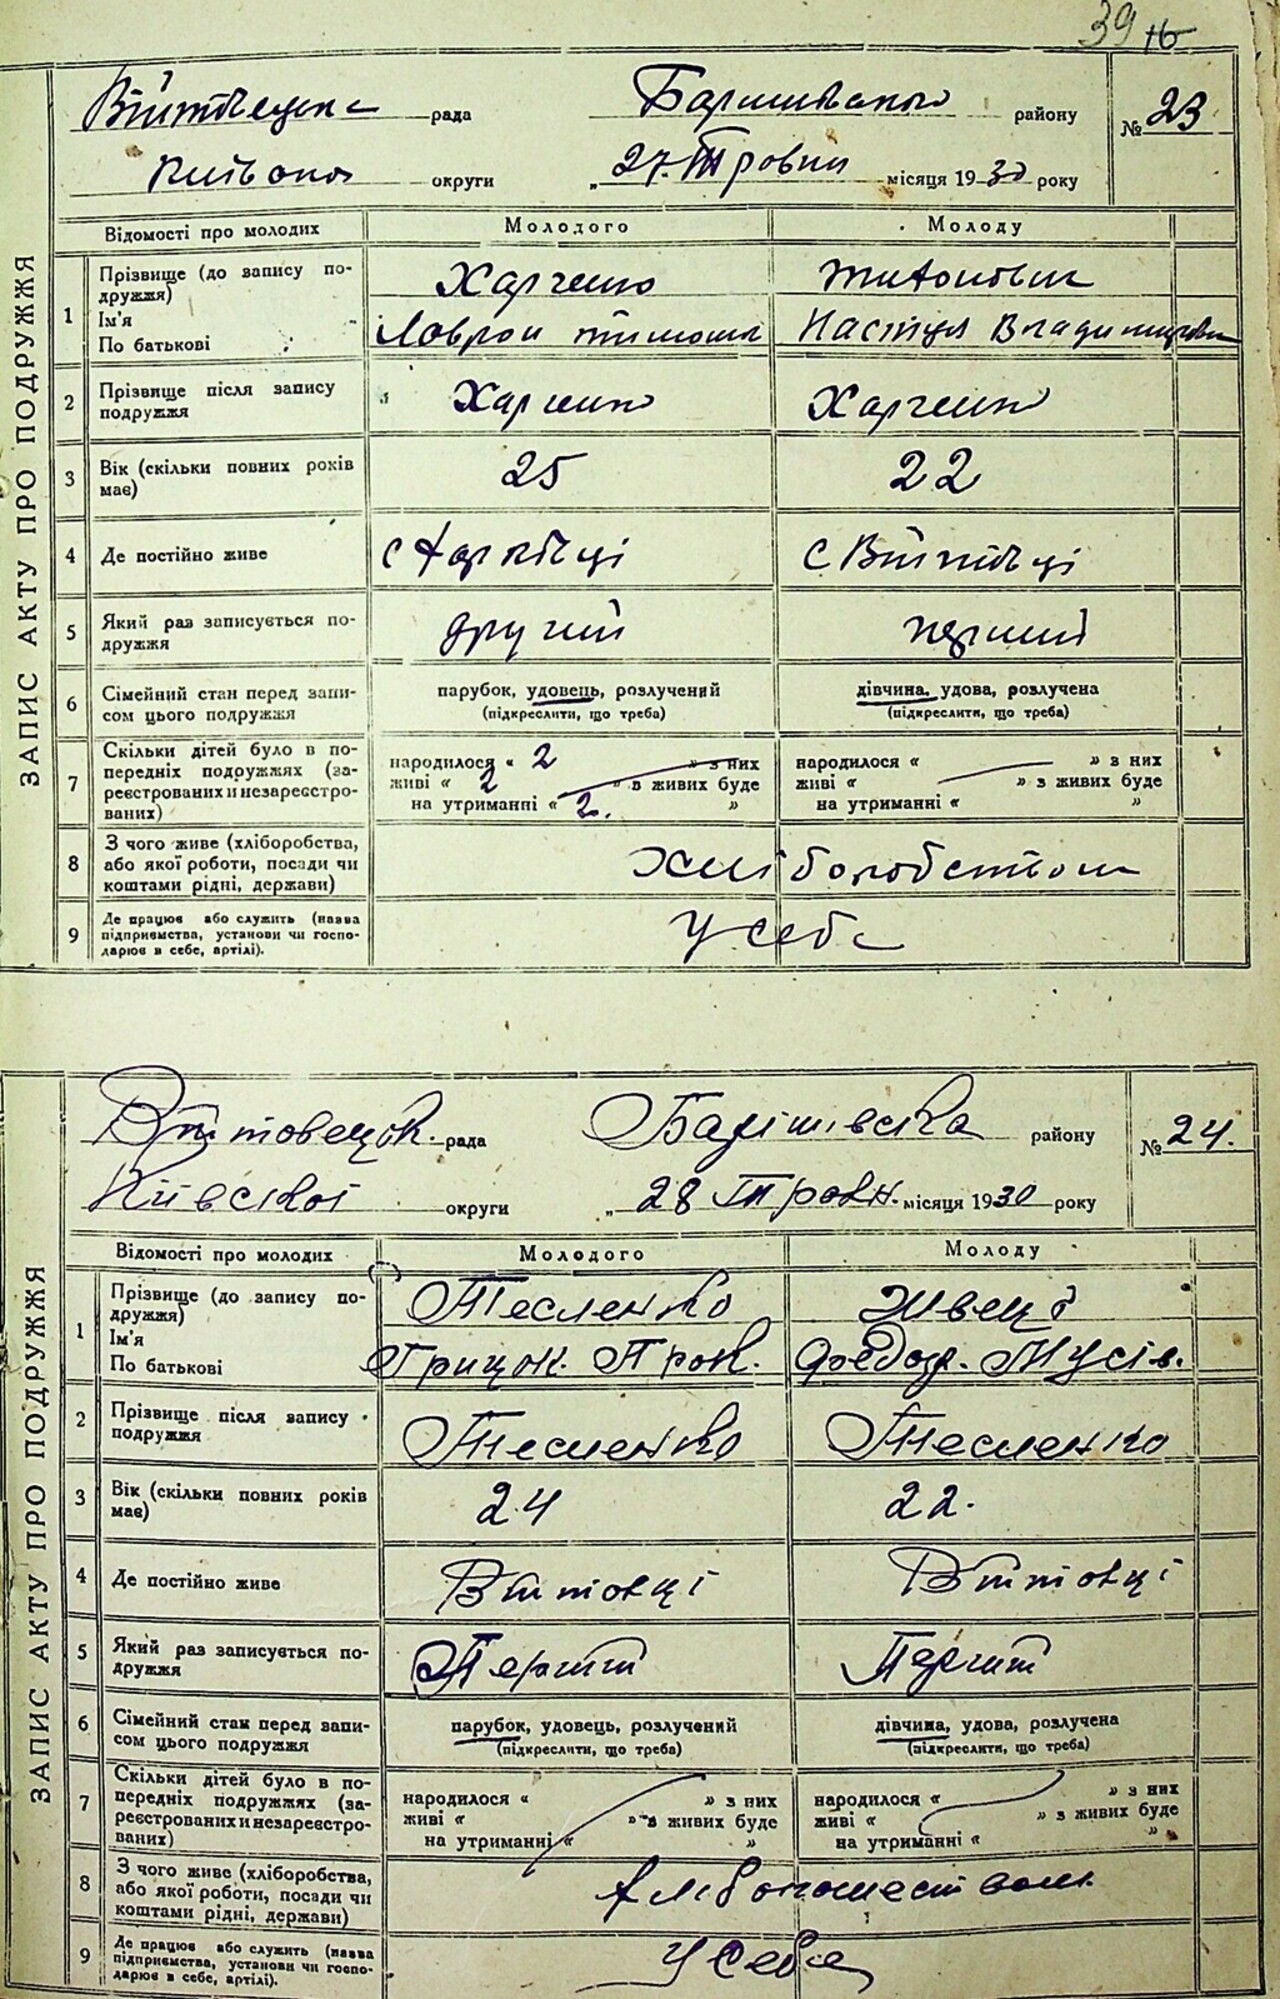 39 16
Війтовецька рада Баришівського району № 23
Київської округи „ 27 Травня місяця 1930 року
ЗАПИС АКТУ ПРО ПОДРУЖЖЯ
Відомості про молодих Молодого Молоду
1 Прізвище (до запису по-
дружжя) Харченко
Ім'я
По батькові Тимош Настуся Владимирівн
2 Прізвище після запису
подружжя Харченко Харченко
3 Вік (скільки повних років
має) 25 22
4 Де постійно живе с с Війтівці
5 Який раз записується по-
дружжя другий перший
6 Сімейний стан перед запи-
сом цього подружжя парубок, удовець, розлучений дівчина, удова, розлучена
(підкреслити, що треба) (підкреслити, що треба)
7 Скільки дітей було в по-
передніх подружжях (за-
реєстрованих и незареєстро-
ваних) народилося « 2 » з них народилося « » з них
живі « 2 » в живих буде живі « » з живих буде
на утриманні « 2. » на утриманні « »
8 З чого живе (хліборобства,
або якої роботи, посади чи
коштами рідні, держави) хліборобством
9 Де працює або служить (назва
підприємства, установи чи госпо-
дарює в себе, артілі). У себе
Війтовецьк. рада Барішівська району № 24.
Київської округи „ 28 Травн. місяця 1930 року
ЗАПИС АКТУ ПРО ПОДРУЖЖЯ
Відомості про молодих Молодого Молоду
1 Прізвище (до запису по-
дружжя) Тесленко Швець
Ім'я
По батькові Грицьк. Прок. Федор. Мусів.
2 Прізвище після запису
подружжя Тесленко Тесленко
3 Вік (скільки повних років
має) 24 22.
4 Де постійно живе Війтовці Війтовці
5 Який раз записується по-
дружжя Перший Перший
6 Сімейний стан перед запи-
сом цього подружжя парубок, удовець, розлучений дівчина, удова, розлучена
(підкреслити, що треба) (підкреслити, що треба)
7 Скільки дітей було в по-
передніх подружжях (за-
реєстрованих и незареєстро-
ваних) народилося « » з них народилося « » з них
живі « » в живих буде живі « » з живих буде
на утриманні « » на утриманні « »
8 З чого живе (хліборобства,
або якої роботи, посади чи
коштами рідні, держави)
9 Де працює або служить (назва
підприємства, установи чи госпо-
дарює в себе, артілі). У себе